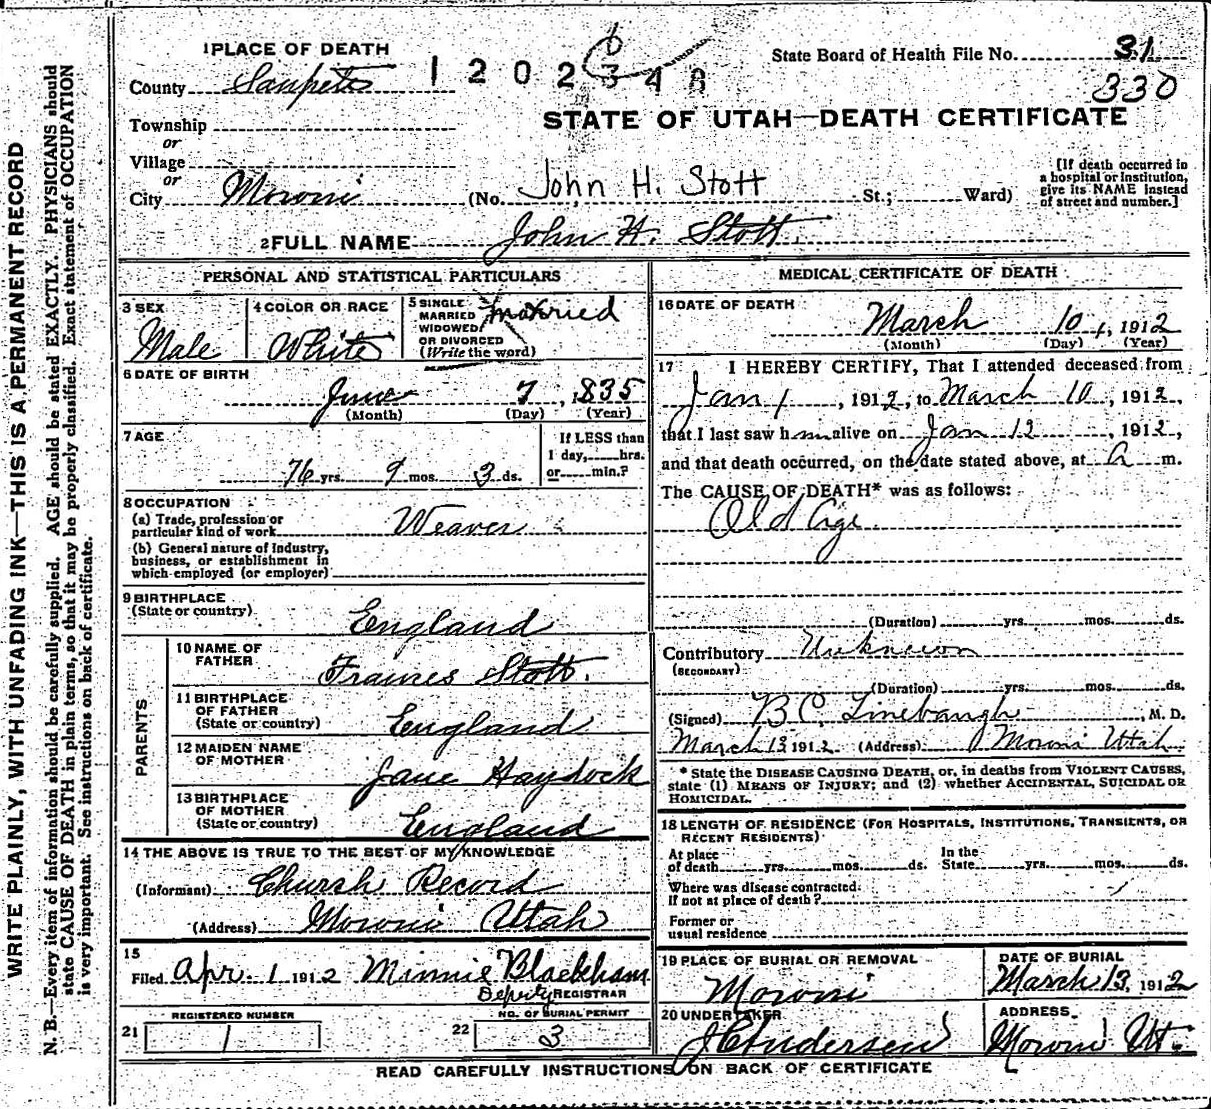 WRITE PLAINLY, WITH UNFADING INK—THIS IS A PERMANENT RECORD
N. B.—Every item of information should be carefully supplied. AGE should be stated EXACTLY. PHYSICIANS should
state CAUSE OF DEATH in plain terms, so that it may be properly classified. Exact statement of OCCUPATION
is very important. See instructions on back of certificate.
1 PLACE OF DEATH
County Sanpete
1202348
State Board of Health File No. 31
330
STATE OF UTAH—DEATH CERTIFICATE
Township
or
Village
or
City Moroni (No. John H. Stott St.; Ward)
[If death occurred in
a hospital or institution,
give its NAME instead
of street and number.]
2 FULL NAME John H. Stott
PERSONAL AND STATISTICAL PARTICULARS
3 SEX
Male
4 COLOR OR RACE
White
5 SINGLE
MARRIED
WIDOWED
OR DIVORCED
(Write the word)
married
6 DATE OF BIRTH
June 7, 1835
(Month) (Day) (Year)
7 AGE
76 yrs. 9 mos. 3 ds.
If LESS than
1 day, hrs.
or min.?
8 OCCUPATION
(a) Trade, profession or
particular kind of work Weaver
(b) General nature of industry,
business, or establishment in
which employed (or employer)
9 BIRTHPLACE
(State or country)
England
PARENTS
10 NAME OF
FATHER
Stott.
11 BIRTHPLACE
OF FATHER
(State or country) England
12 MAIDEN NAME
OF MOTHER
Jane Haydock
13 BIRTHPLACE
OF MOTHER
(State or country) England
14 THE ABOVE IS TRUE TO THE BEST OF MY KNOWLEDGE
(Informant) Church Record
(Address) Moroni Utah
15
Filed Apr. 1 1912 Minnie Blackham
Deputy REGISTRAR
21 REGISTERED NUMBER
1
22 NO. OF BURIAL PERMIT
3
MEDICAL CERTIFICATE OF DEATH
16 DATE OF DEATH
March 10, 1912
(Month) (Day) (Year)
17 I HEREBY CERTIFY, That I attended deceased from
Jan 1, 1912, to March 10, 1912,
that I last saw him alive on Jan 12, 1912,
and that death occurred, on the date stated above, at A m.
The CAUSE OF DEATH* was as follows:
Old Age
(Duration) yrs. mos. ds.
Contributory Unknown
(SECONDARY)
(Duration) yrs. mos. ds.
(Signed) B C. Linebaugh, M. D.
March 13 1912 (Address) Moroni Utah
* State the DISEASE CAUSING DEATH, or, in deaths from VIOLENT CAUSES,
state (1) MEANS OF INJURY; and (2) whether ACCIDENTAL, SUICIDAL OR
HOMICIDAL.
18 LENGTH OF RESIDENCE (FOR HOSPITALS, INSTITUTIONS, TRANSIENTS, OR
RECENT RESIDENTS)
At place
of death yrs. mos. ds.
In the
State yrs. mos. ds.
Where was disease contracted
if not at place of death?
Former or
usual residence
19 PLACE OF BURIAL OR REMOVAL
Moroni
DATE OF BURIAL
March 13, 1912
20 UNDERTAKER
J C Andersen
ADDRESS
Moroni Ut.
READ CAREFULLY INSTRUCTIONS ON BACK OF CERTIFICATE